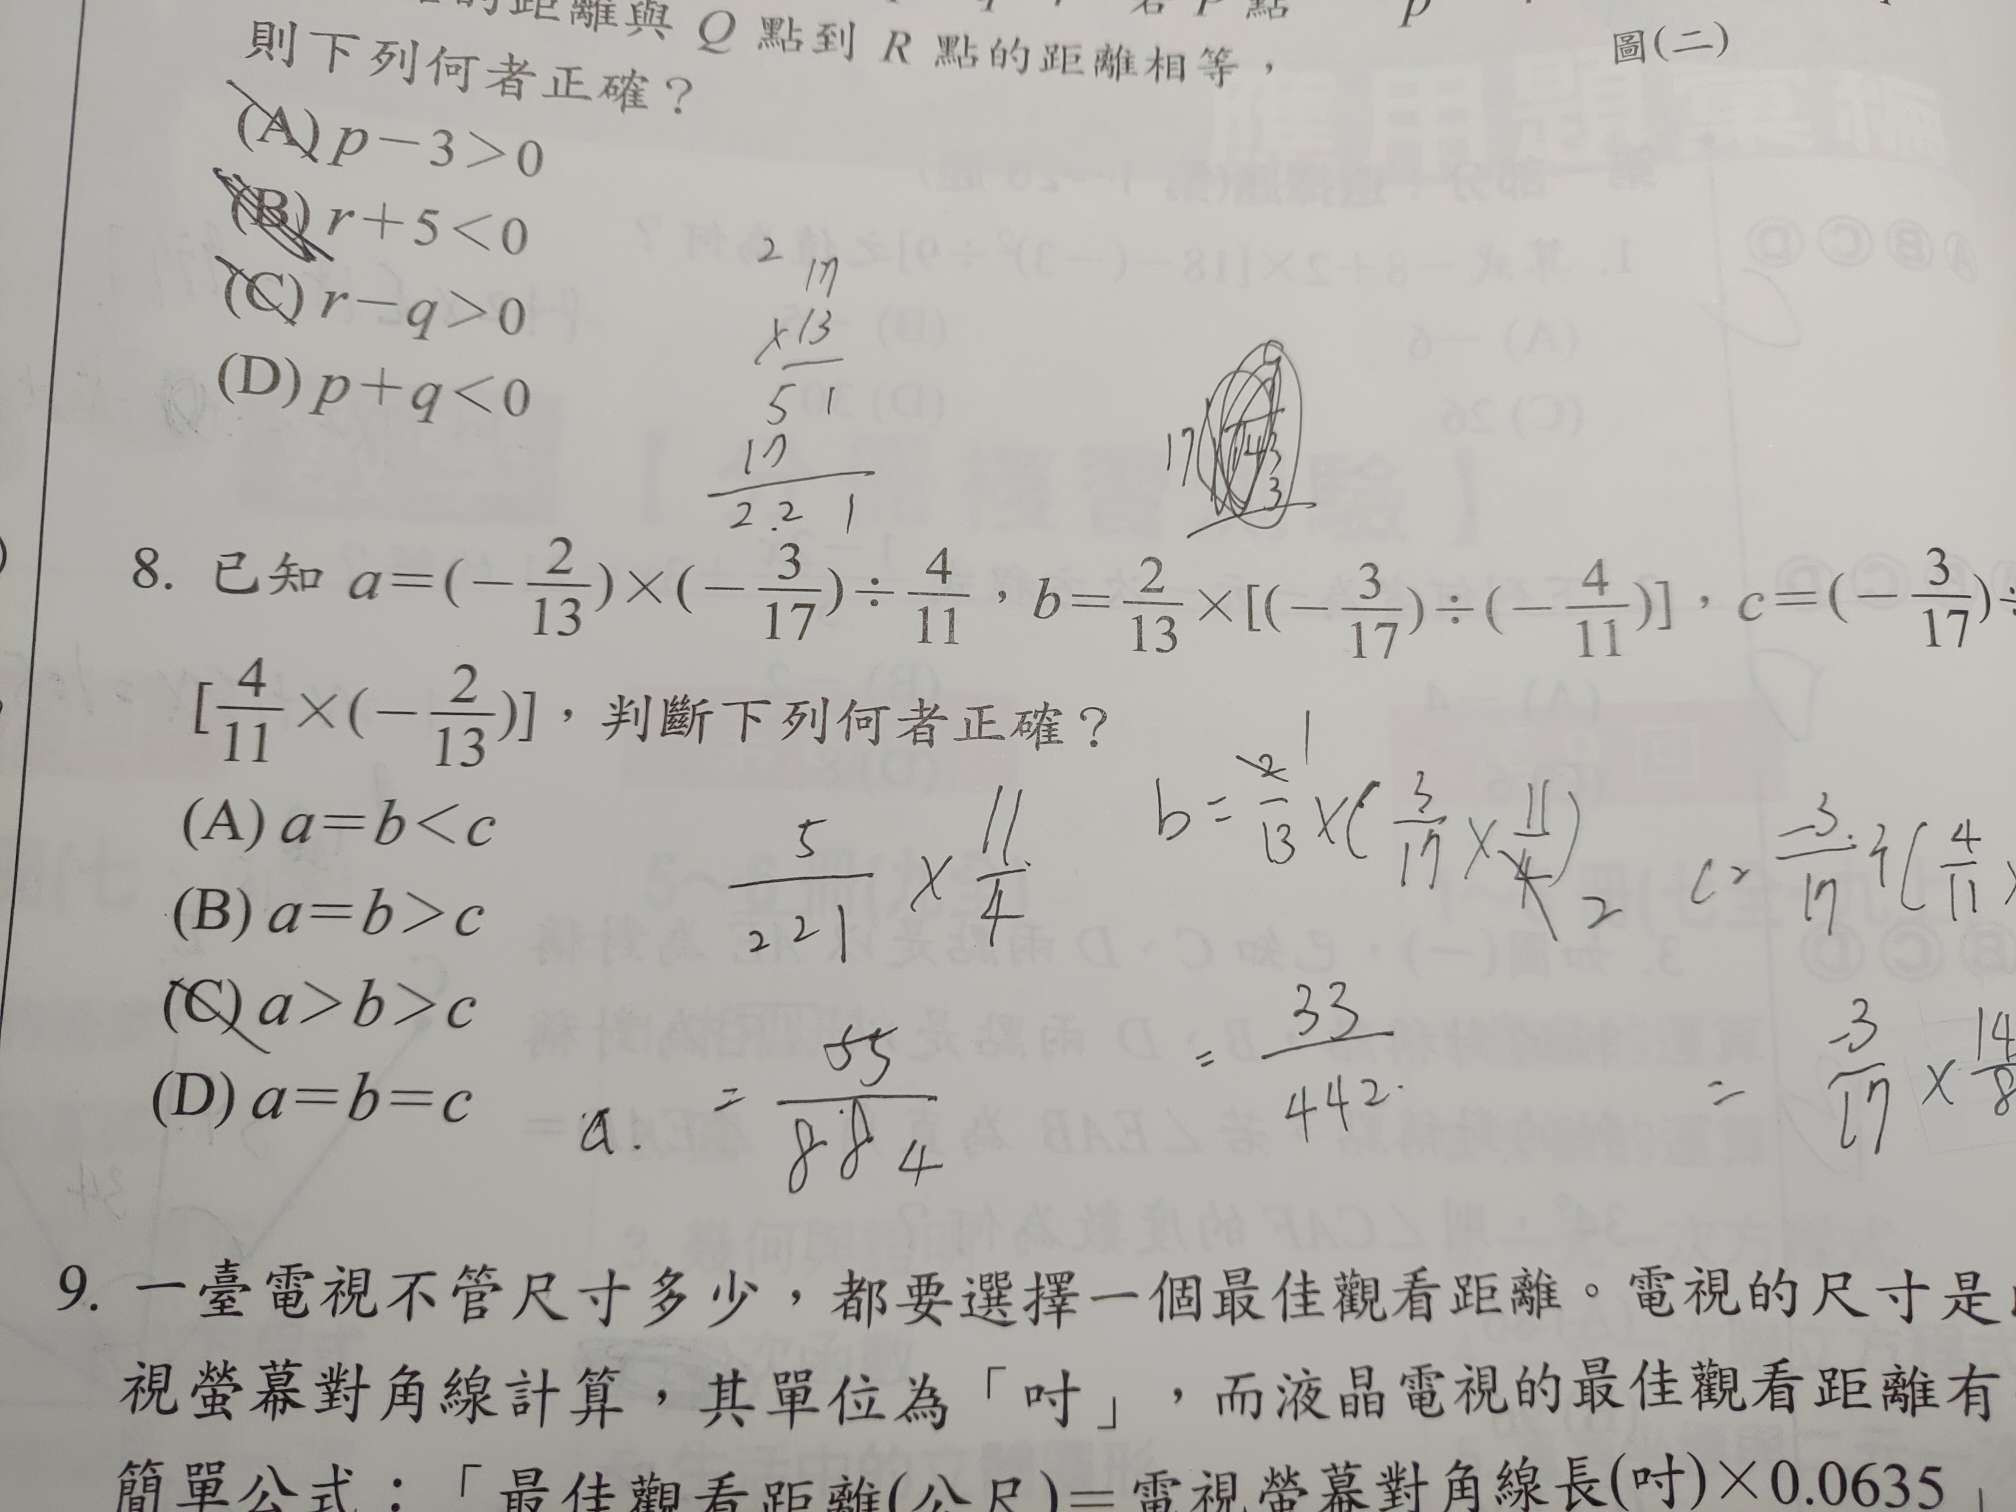 的距離與 Q 點到 R 點的距離相等，
圖(二)
則下列何者正確？
(A) p－3＞0
(B) r＋5＜0
(C) r－q＞0
(D) p＋q＜0
2
17
×13
5 1
17
2 2 1
17
8. 已知 a＝(－2/13)×(－3/17)÷4/11，b＝2/13×[(－3/17)÷(－4/11)]，c＝(－3/17)÷
[4/11×(－2/13)]，判斷下列何者正確？
(A) a＝b＜c
(B) a＝b＞c
(C) a＞b＞c
(D) a＝b＝c
5/221 × 11/4
a. = 55/884
b = 2/13 ×( 3/17 × 11/4 ) 1 2
= 33/442
-3/17 ÷ ( 4/11 ×
= -3/17 × 14
9. 一臺電視不管尺寸多少，都要選擇一個最佳觀看距離。電視的尺寸是
視螢幕對角線計算，其單位為「吋」，而液晶電視的最佳觀看距離有
簡單公式：「最佳觀看距離(公尺)＝電視螢幕對角線長(吋)×0.0635」